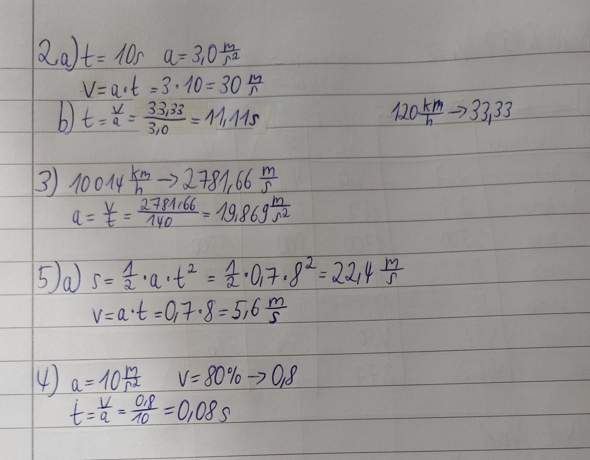 2.a) t = 10s a = 3,0 m/s²
v = a·t = 3·10 = 30 m/s
b) t = v/a = 33,33/3,0 = 11,11s 120 km/h → 33,33
3) 10014 km/h → 2781,66 m/s
a = v/t = 2781,66/140 = 19,869 m/s²
5)a) s = 1/2 · a · t² = 1/2 · 0,7 · 8² = 22,4 m/s
v = a·t = 0,7·8 = 5,6 m/s
4) a = 10 m/s² v = 80% → 0,8
t = v/a = 0,8/10 = 0,08s